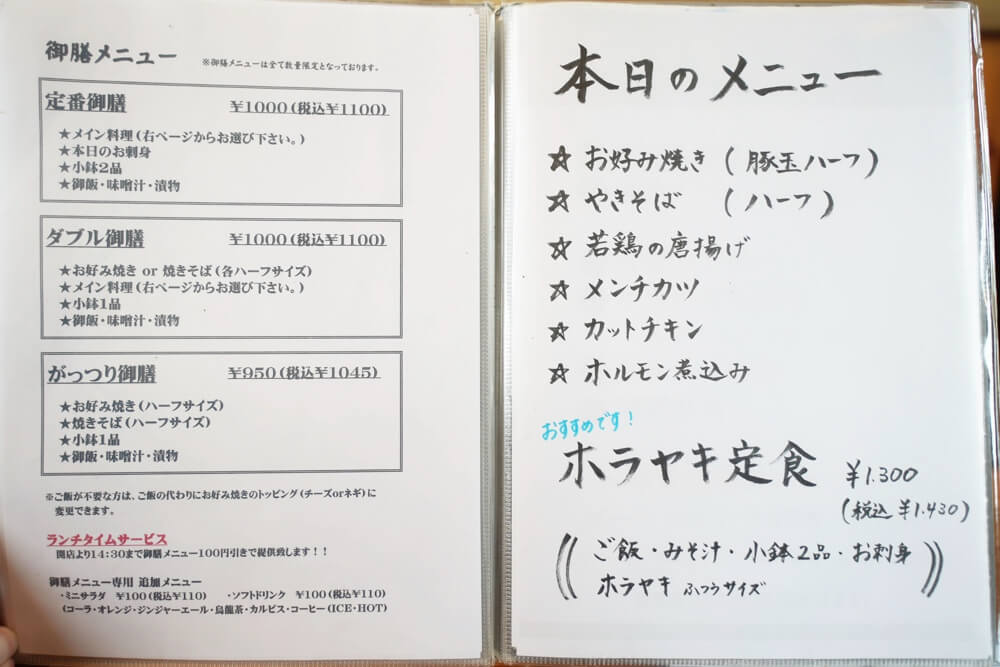 御膳メニュー ※御膳メニューは全て数量限定となっております。
定番御膳 ¥1000(税込¥1100)
★メイン料理(右ページからお選び下さい。)
★本日のお刺身
★小鉢2品
★御飯・味噌汁・漬物
ダブル御膳 ¥1000(税込¥1100)
★お好み焼き or 焼きそば(各ハーフサイズ)
★メイン料理(右ページからお選び下さい。)
★小鉢1品
★御飯・味噌汁・漬物
がっつり御膳 ¥950(税込¥1045)
★お好み焼き(ハーフサイズ)
★焼きそば(ハーフサイズ)
★小鉢1品
★御飯・味噌汁・漬物
※ご飯が不要な方は、ご飯の代わりにお好み焼きのトッピング(チーズorネギ)に
変更できます。
ランチタイムサービス
開店より14:30まで御膳メニュー100円引きで提供致します!!
御膳メニュー専用 追加メニュー
・ミニサラダ ¥100(税込¥110) ・ソフトドリンク ¥100(税込¥110)
(コーラ・オレンジ・ジンジャーエール・烏龍茶・カルピス・コーヒー(ICE・HOT)
本日のメニュー
☆ お好み焼き (豚玉ハーフ)
☆ やきそば (ハーフ)
☆ 若鶏の唐揚げ
☆ メンチカツ
☆ カットチキン
☆ ホルモン煮込み
おすすめです!
ホラヤキ定食 ¥1.300
(税込 ¥1.430)
(( ご飯・みそ汁・小鉢2品・お刺身
ホラヤキ ふつうサイズ ))